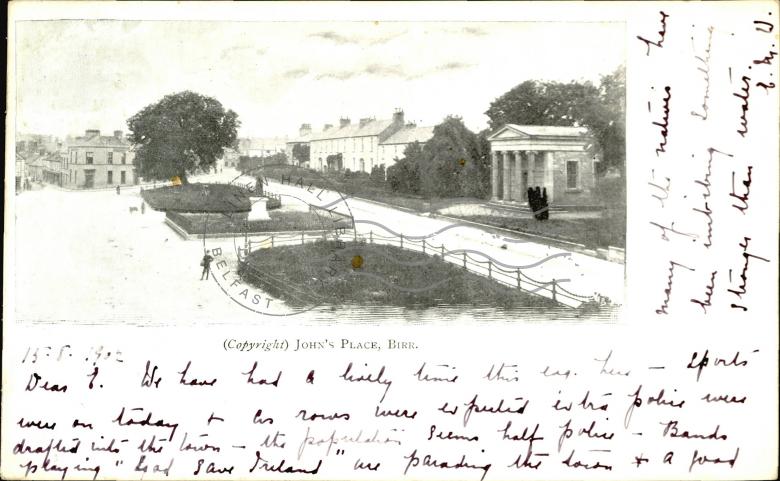 (Copyright) JOHN'S PLACE, BIRR.
15-8-1902
Dear E. We have had a lively time this eve. here – Sports
were on today & as rows were expected extra police were
drafted into the town – the population seems half police – Bands
playing "God Save Ireland" are parading the town & a good
many of the natives have
been imbibing something
stronger than water.
E. M. D.
LINEN HALL LIBRARY
BELFAST